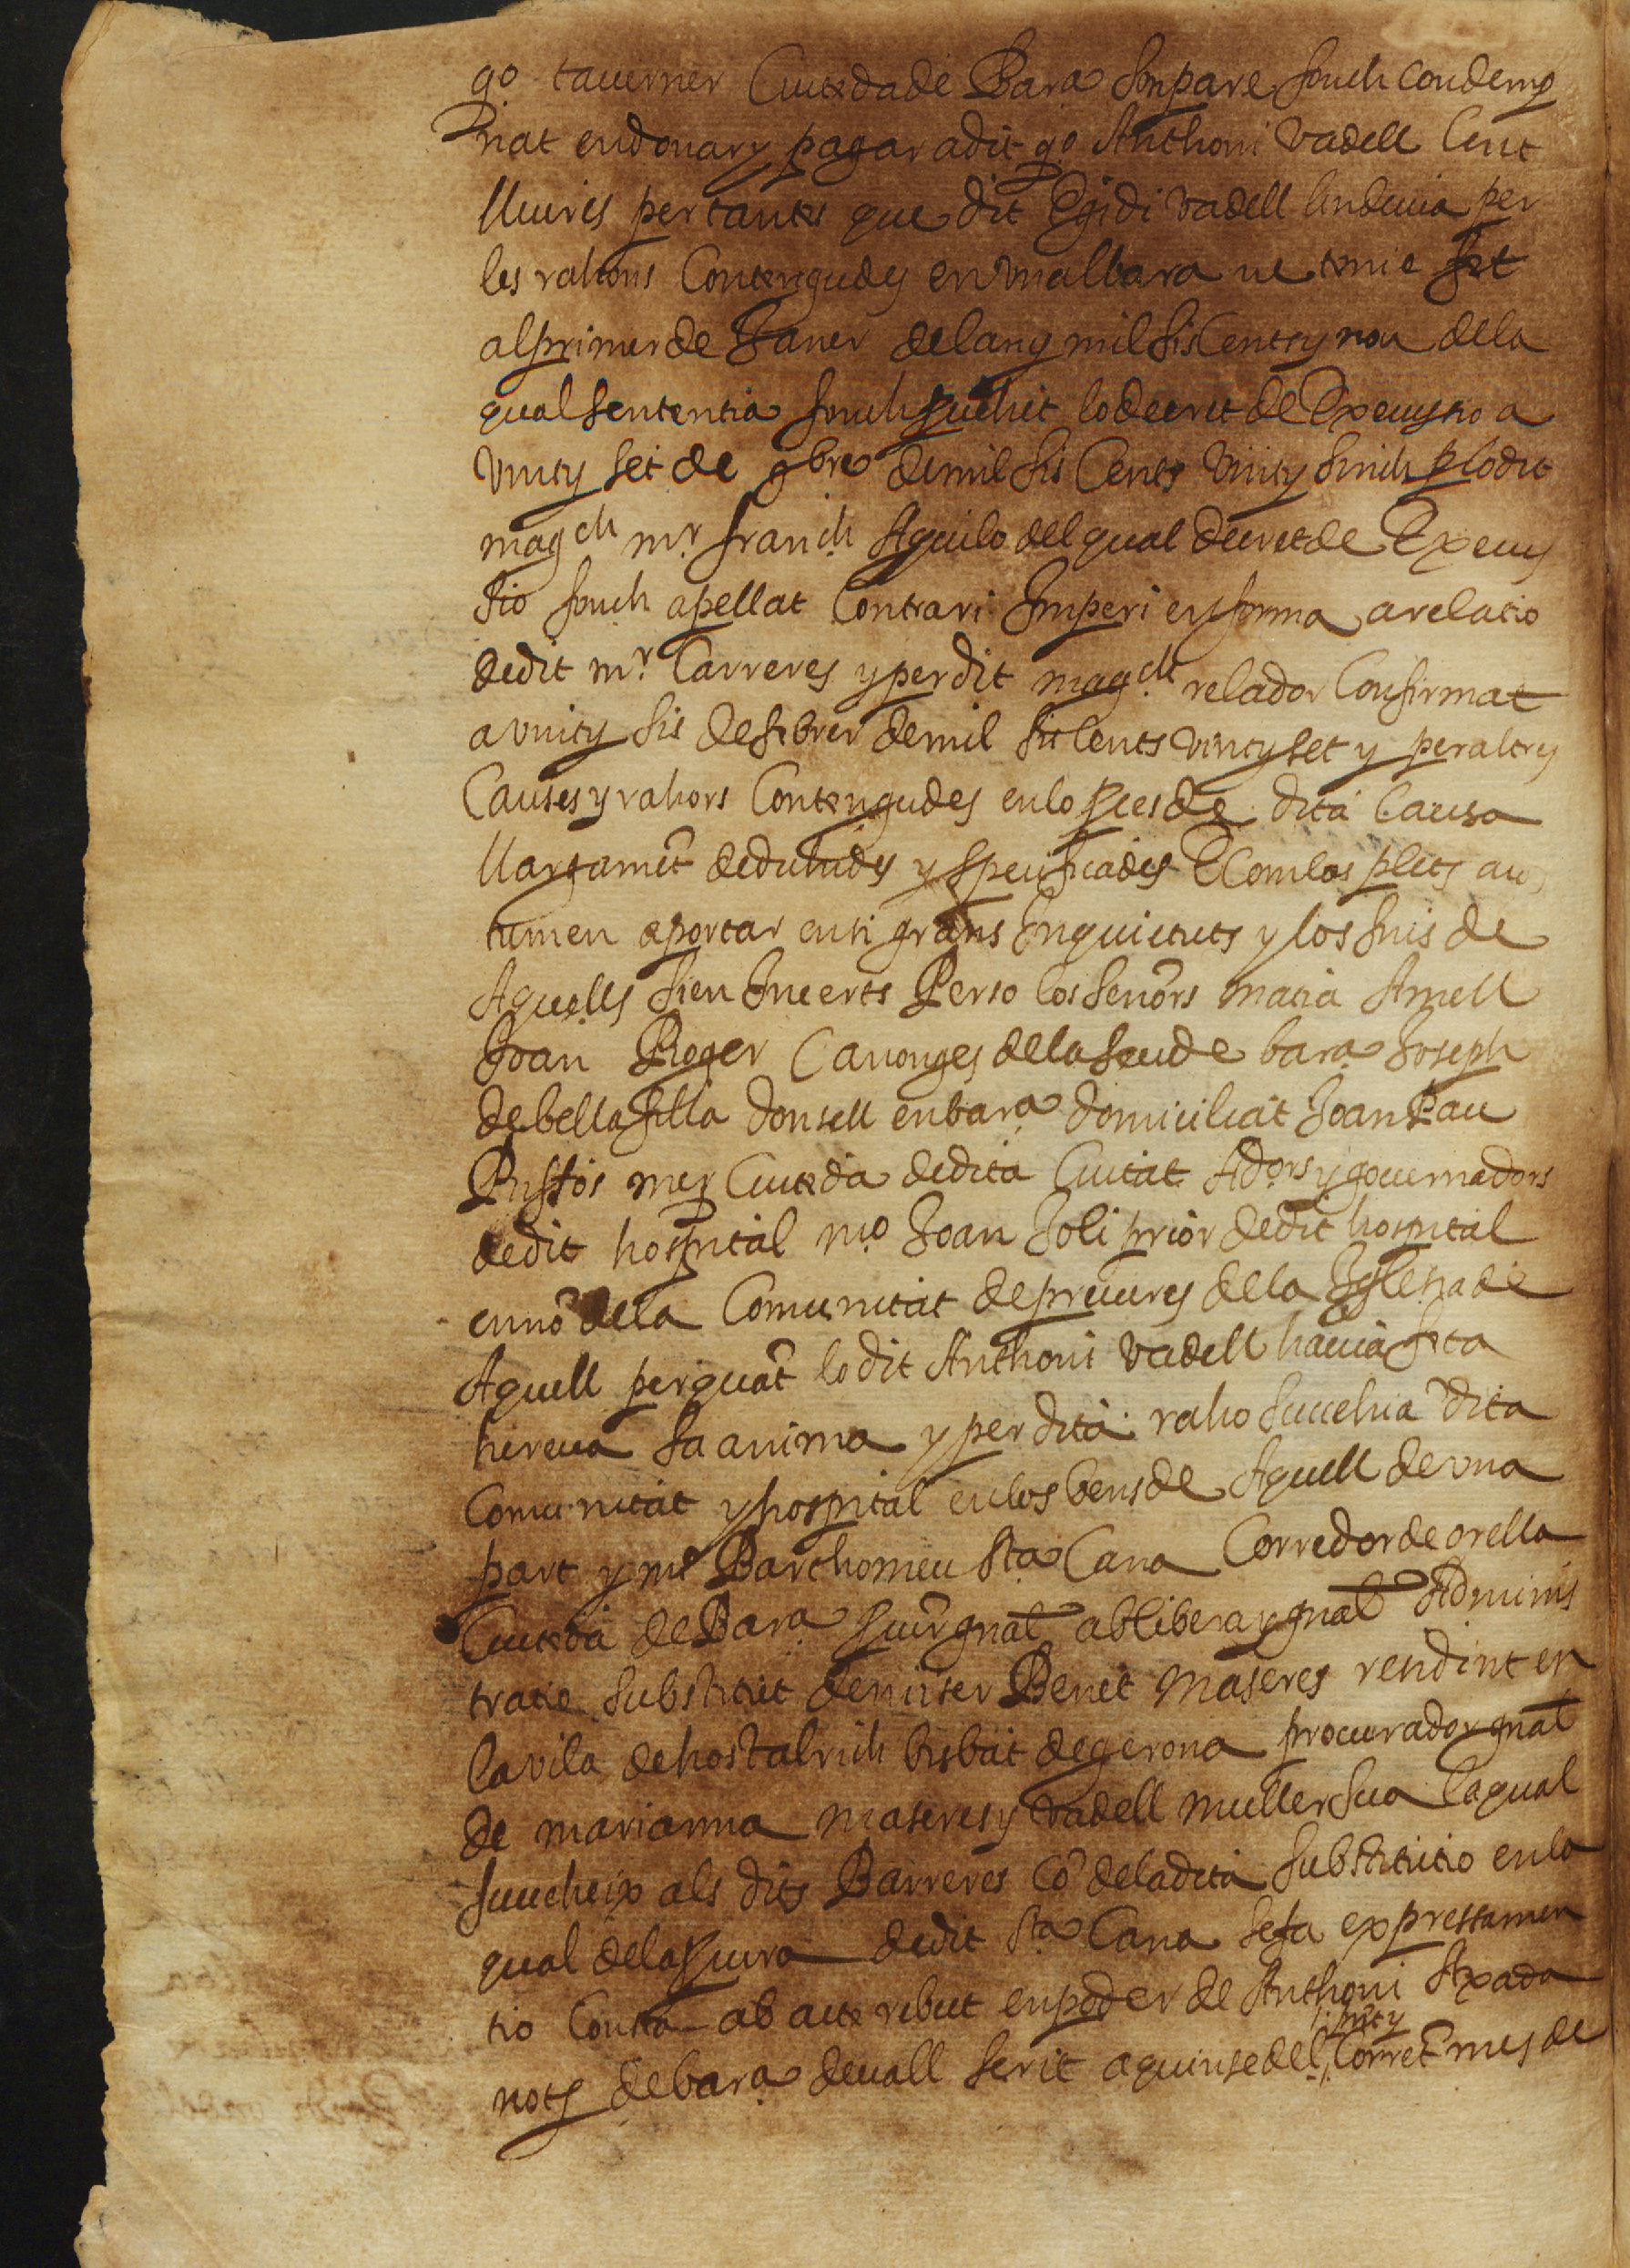 qº tauerner Ciutedadé Bara son pare fonch condemp
nat en donar y pagar a dit qº Anthoni Vadell Cent
lliures per tantes que dit Egidi Vadell lin deuia per
les rahons Contengudes en una llbara ne tenie fet
al primer de Janer del any mil sis Cents y nou de la
qual sententia fonch puehit lo decret de Execussio a
vint y set de 9bre de mil sis Cents vint y sinch p lo dit
magch mr franch Aguilo del qual decret de Execus
sio fonch apellat Contrari Imperi en forma a relatio
de dit mr Carreres y per dit magch relador Confirmat
a vint y sis de febrer de mil sis Cents vint y set y per altres
Causes y rahons Contengudes en lo pces de dita Causa
llargament deduhides y specificades E Com los plets acos
tumen aportar en si grans Inquietuts y los fins de
Aquells sien Incerts Perso los señors Matia Amell
Joan Roger Canonges de la Seu de bara Joseph
de bellafilla donsell en bara domiciliat Joan Pau
Rossos mer Ciutedà de dita Ciutat Adors y gouernadors
de dit hospital mº Joan Soli prior de dit hospital
en nõ de la Comunitat de preueres de la Iglesia de
Aquell per quãt lo dit Anthoni Vadell hauia feta
hereua sa anima y per dita raho succehia dita
Comunitat y hospital en los bens de Aquell de vna
part y mº Barthomeu Sta Cana Corredor de orella
Ciutedà de Bara pcur gnal ab libera y gnal Adminis
tratio substituit de miser Benet Maseres rendint en
la vila de hostalrich bisbat de gerona procurador gnal
de marianna maseres y Vadell muller sua la qual
succeheix als dits Barreres Cõ de la dita substitutio en la
qual de la pcura de dit Sta Cana se fa expressa men
tio Consta ab acte rebut en poder de Anthoni Axada
noty de bara deuall scrit a quinse del Corret mes de